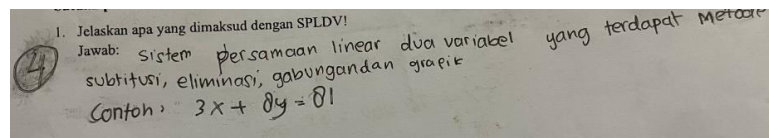 1. Jelaskan apa yang dimaksud dengan SPLDV!
Jawab: Sistem persamaan linear dua variabel yang terdapat Metode
4 subtitusi, eliminasi, gabungandan grafik
Contoh: 3x + 8y = 81